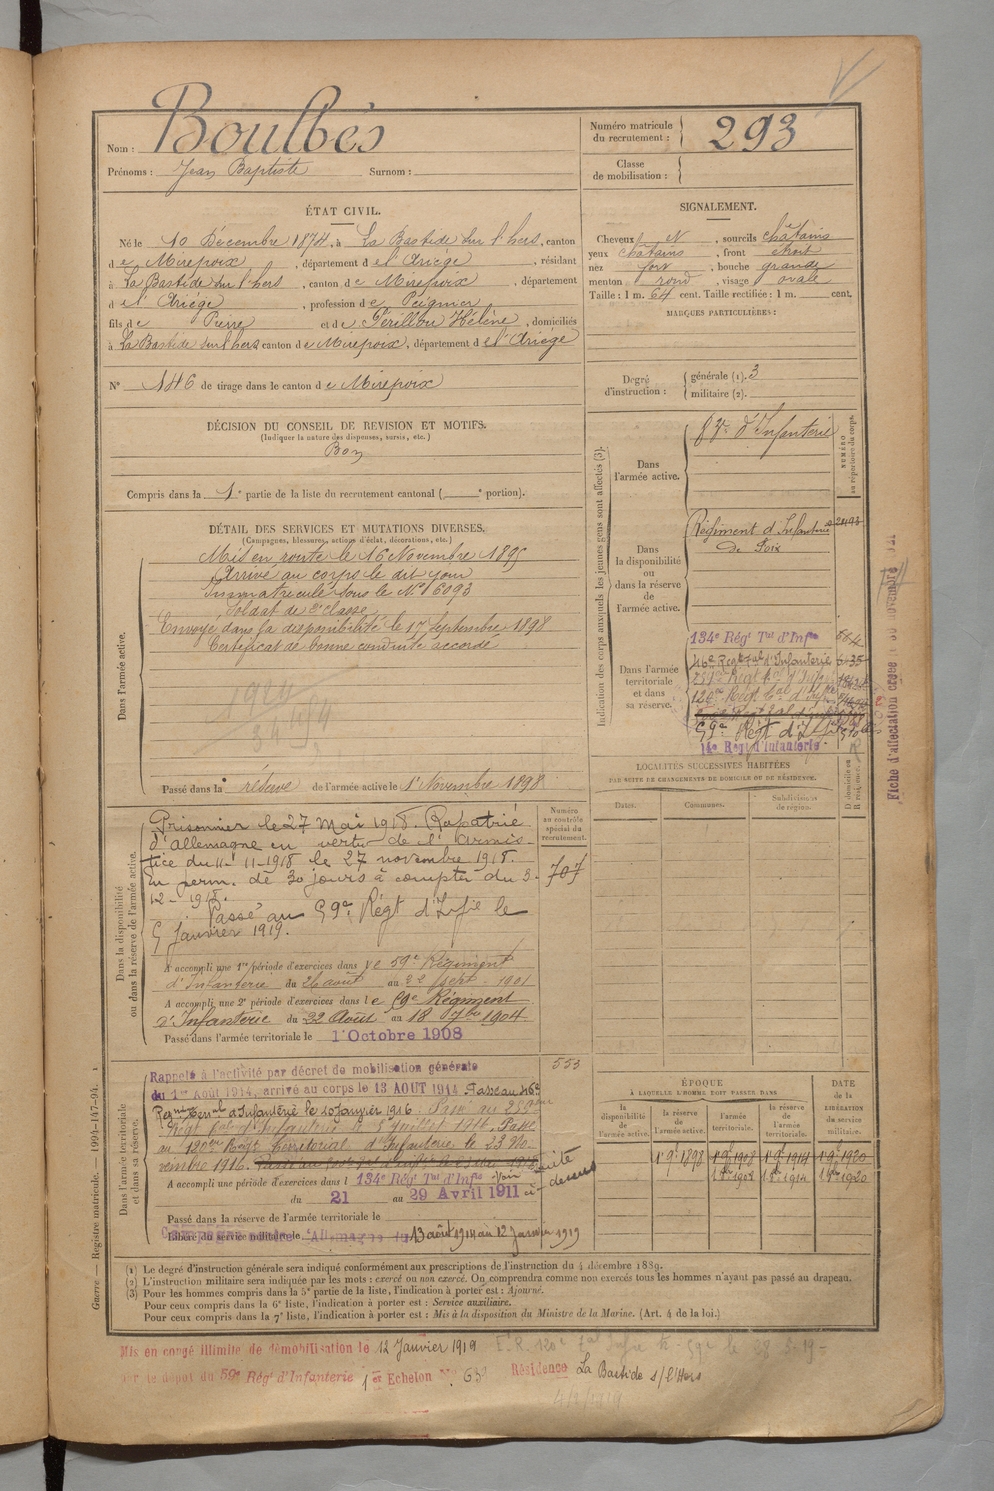 Nom : Boulbès
Prénoms : Jean Baptiste Surnom :
Numéro matricule du recrutement : 293
Classe de mobilisation :
ÉTAT CIVIL.
Né le 10 Décembre 1874, à La Bastide sur l'hers, canton
de Mirepoix, département de l'Ariège, résidant
à La Bastide sur l'hers, canton de Mirepoix, département
de l'Ariège, profession de Peignier
fils de Pierre et de Périllou Hélène, domiciliés
à La Bastide sur l'hers canton de Mirepoix, département de l'Ariège
N° 146 de tirage dans le canton de Mirepoix
SIGNALEMENT.
Cheveux et, sourcils châtains
yeux châtains, front étroit
nez fort, bouche grande
menton rond, visage ovale
Taille : 1 m. 64 cent. Taille rectifiée : 1 m. cent.
MARQUES PARTICULIÈRES :
Degré d'instruction : générale (1). 3
militaire (2).
DÉCISION DU CONSEIL DE REVISION ET MOTIFS.
(Indiquer la nature des dispenses, sursis, etc.)
Bon
Compris dans la 1e partie de la liste du recrutement cantonal ( e portion).
DÉTAIL DES SERVICES ET MUTATIONS DIVERSES.
(Campagnes, blessures, actions d'éclat, décorations, etc.)
Dans l'armée active.
Mis en route le 16 Novembre 1895
Arrivé au corps le dit jour
Immatriculé sous le N° 6093
Soldat de 2e classe
Envoyé dans la disponibilité le 17 Septembre 1898
Certificat de bonne conduite accordé
1924
Passé dans la réserve de l'armée active le 1er Novembre 1898
Dans la disponibilité ou dans la réserve de l'armée active.
Numéro au contrôle spécial du recrutement.
707
Prisonnier le 27 Mai 1918. Rapatrié
d'Allemagne en vertu de l'armis-
tice du 11-11-1918 le 27 novembre 1918.
En perm. de 30 jours à compter du 3-
12-1918.
Passé au 59e Régt d'Infie le
5 Janvier 1919.
A accompli une 1re période d'exercices dans le 59e Régiment
d'Infanterie du 26 août au 22 sept. 1901
A accompli une 2e période d'exercices dans le 59e Régiment
d'Infanterie du 22 Août au 18 7bre 1904.
Passé dans l'armée territoriale le 1 Octobre 1908
Dans l'armée territoriale et dans sa réserve.
553
Rappelé à l'activité par décret de mobilisation générale
du 1er Août 1914, arrivé au corps le 13 AOUT 1914. Passé au 46e
Régiment Terrial d'Infanterie le 10 Janvier 1916. Passé au
Régt Tal d'Infanterie le 5 Juillet 1916. Passé
au 120eme Régt territorial d'Infanterie le 23 No-
vembre 1916.
Voir suite ci-dessus
A accompli une période d'exercices dans l 134e Régt Tal d'Infie
du 21 au 29 Avril 1911
Passé dans la réserve de l'armée territoriale le
Libéré du service militaire le
Allemagne du 13 août 1914 au 12 Janvier 1919
Indication des corps auxquels les jeunes gens sont affectés (3).
NUMÉRO au répertoire du corps.
Dans l'armée active.
d'Infanterie
Dans la disponibilité ou dans la réserve de l'armée active.
Régiment d'Infanterie
de Foix
Dans l'armée territoriale et dans sa réserve.
134e Régt Tal d'Infie
46e Régt Tal d'Infanterie
120e Régt Tal d'Infie
59e Régt d'Infie
14e Régt d'Infanterie
LOCALITÉS SUCCESSIVES HABITÉES
PAR SUITE DE CHANGEMENTS DE DOMICILE OU DE RÉSIDENCE.
Dates. Communes. Subdivisions de région. D domicile ou R résidence.
ÉPOQUE
À LAQUELLE L'HOMME DOIT PASSER DANS
la disponibilité de l'armée active. la réserve de l'armée active. l'armée territoriale. la réserve de l'armée territoriale. DATE de la LIBÉRATION du service militaire.
1 9bre 1898 1 9bre 1908 1 9bre 1914 1 9bre 1920
1 8bre 1908 1 8bre 1914 1 8bre 1920
(1) Le degré d'instruction générale sera indiqué conformément aux prescriptions de l'instruction du 4 décembre 1889.
(2) L'instruction militaire sera indiquée par les mots : exercé ou non exercé. On comprendra comme non exercés tous les hommes n'ayant pas passé au drapeau.
(3) Pour les hommes compris dans la 5e partie de la liste, l'indication à porter est : Ajourné.
Pour ceux compris dans la 6e liste, l'indication à porter est : Service auxiliaire.
Pour ceux compris dans la 7e liste, l'indication à porter est : Mis à la disposition du Ministre de la Marine. (Art. 4 de la loi.)
Guerre — Registre matricule. — 1994-147-94.
Mis en congé illimité de démobilisation le 12 Janvier 1919
par le dépôt du 59e Régt d'Infanterie 1er Echelon N° 63 Résidence La Bastide s/ l'Hers
Fiche d'affectation créée